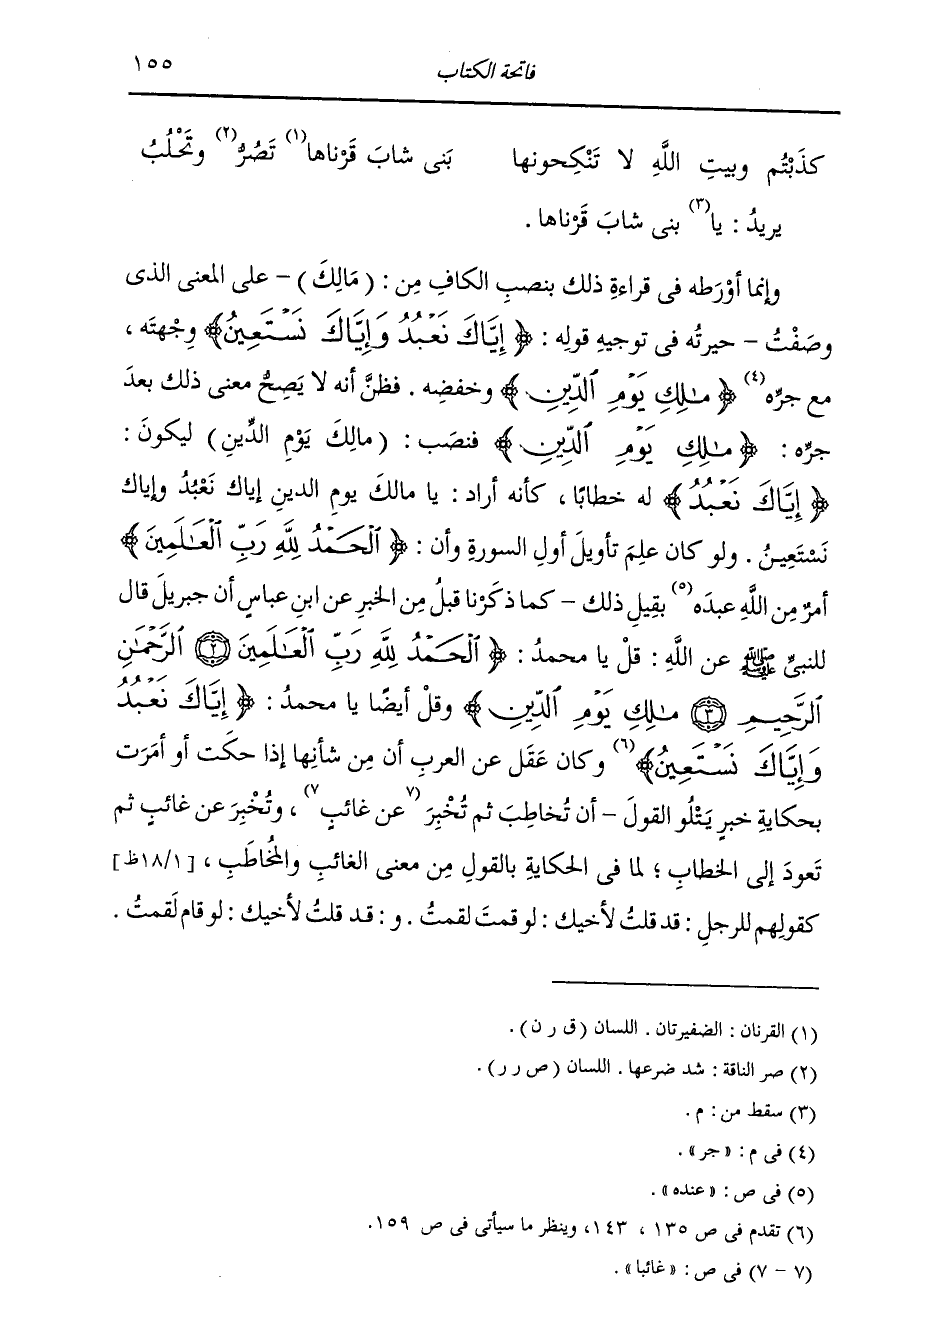 فاتحة الكتاب ١٥٥
كذَبْتُم وبيتِ اللَّهِ لا تَنْكِحونها بَنى شابَ قَرْناها(١) تَصُرُّ(٢) وتَحْلُبُ
يريدُ : يا(٣) بنى شابَ قَرْناها .
وإنما أوْرَطه فى قراءةِ ذلك بنصبِ الكافِ مِن : ( مَالِكَ ) - على المعنى الذى
وصَفْتُ - حيرتُه فى توجيهِ قولِه : ﴿ إِيَّاكَ نَعْبُدُ وَإِيَّاكَ نَسْتَعِينُ ﴾ وِجْهتَه ،
مع جرِّه(٤) ﴿ مَٰلِكِ يَوْمِ ٱلدِّينِ ﴾ وخفضِه . فظنَّ أنه لا يَصِحُّ معنى ذلك بعدَ
جرِّه : ﴿ مَٰلِكِ يَوْمِ ٱلدِّينِ ﴾ فنصَب : ( مالِكَ يَوْمِ الدِّينِ ) ليكونَ :
﴿ إِيَّاكَ نَعْبُدُ ﴾ له خطابًا ، كأنه أراد : يا مالكَ يومِ الدينِ إياك نَعْبُدُ وإياك
نَسْتَعِينُ . ولو كان علِمَ تأويلَ أولِ السورةِ وأن : ﴿ ٱلْحَمْدُ لِلَّهِ رَبِّ ٱلْعَٰلَمِينَ ﴾
أمرٌ مِن اللَّهِ عبدَه(٥) بقِيلِ ذلك - كما ذكَرْنا قبلُ مِن الخبرِ عن ابنِ عباسٍ أن جبريلَ قال
للنبىِّ ﷺ عن اللَّهِ : قلْ يا محمدُ : ﴿ ٱلْحَمْدُ لِلَّهِ رَبِّ ٱلْعَٰلَمِينَ ۝٢ ٱلرَّحْمَٰنِ
ٱلرَّحِيمِ ۝٣ مَٰلِكِ يَوْمِ ٱلدِّينِ ﴾ وقلْ أيضًا يا محمدُ : ﴿ إِيَّاكَ نَعْبُدُ
وَإِيَّاكَ نَسْتَعِينُ ﴾(٦) وكان عَقَل عن العربِ أن مِن شأنِها إذا حكَت أو أمَرَت
بحكايةِ خبرٍ يَتْلُو القولَ - أن تُخاطِبَ ثم تُخْبِرَ (٧عن غائبٍ٧) ، وتُخْبِرَ عن غائبٍ ثم
تَعودَ إلى الخطابِ ؛ لما فى الحكايةِ بالقولِ مِن معنى الغائبِ والمُخاطَبِ ، [١٨/١ظ]
كقولِهم للرجلِ : قد قلتُ لأخيك : لو قمتَ لقمتُ . و : قد قلتُ لأخيك : لو قام لَقمتُ .
(١) القرنان : الضفيرتان . اللسان ( ق ر ن ) .
(٢) صر الناقة : شد ضرعها . اللسان ( ص ر ر ) .
(٣) سقط من : م .
(٤) فى م : « جر » .
(٥) فى ص : « عنده » .
(٦) تقدم فى ص ١٣٥ ، ١٤٣ ، وينظر ما سيأتى فى ص ١٥٩ .
(٧ - ٧) فى ص : « غائبا » .